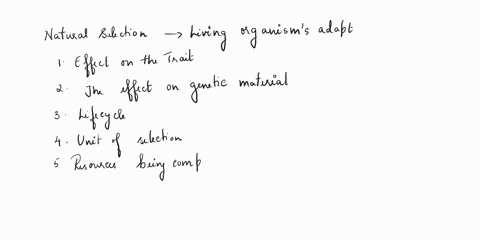 Natural Selection → Living organism's adapt
1. Effect on the Trait
2. The effect on genetic material
3. Lifecycle
4. Unit of selection
5 Resources being comp